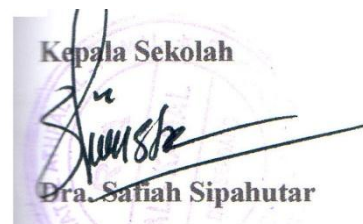 Kepala Sekolah
Dra. Safiah Sipahutar